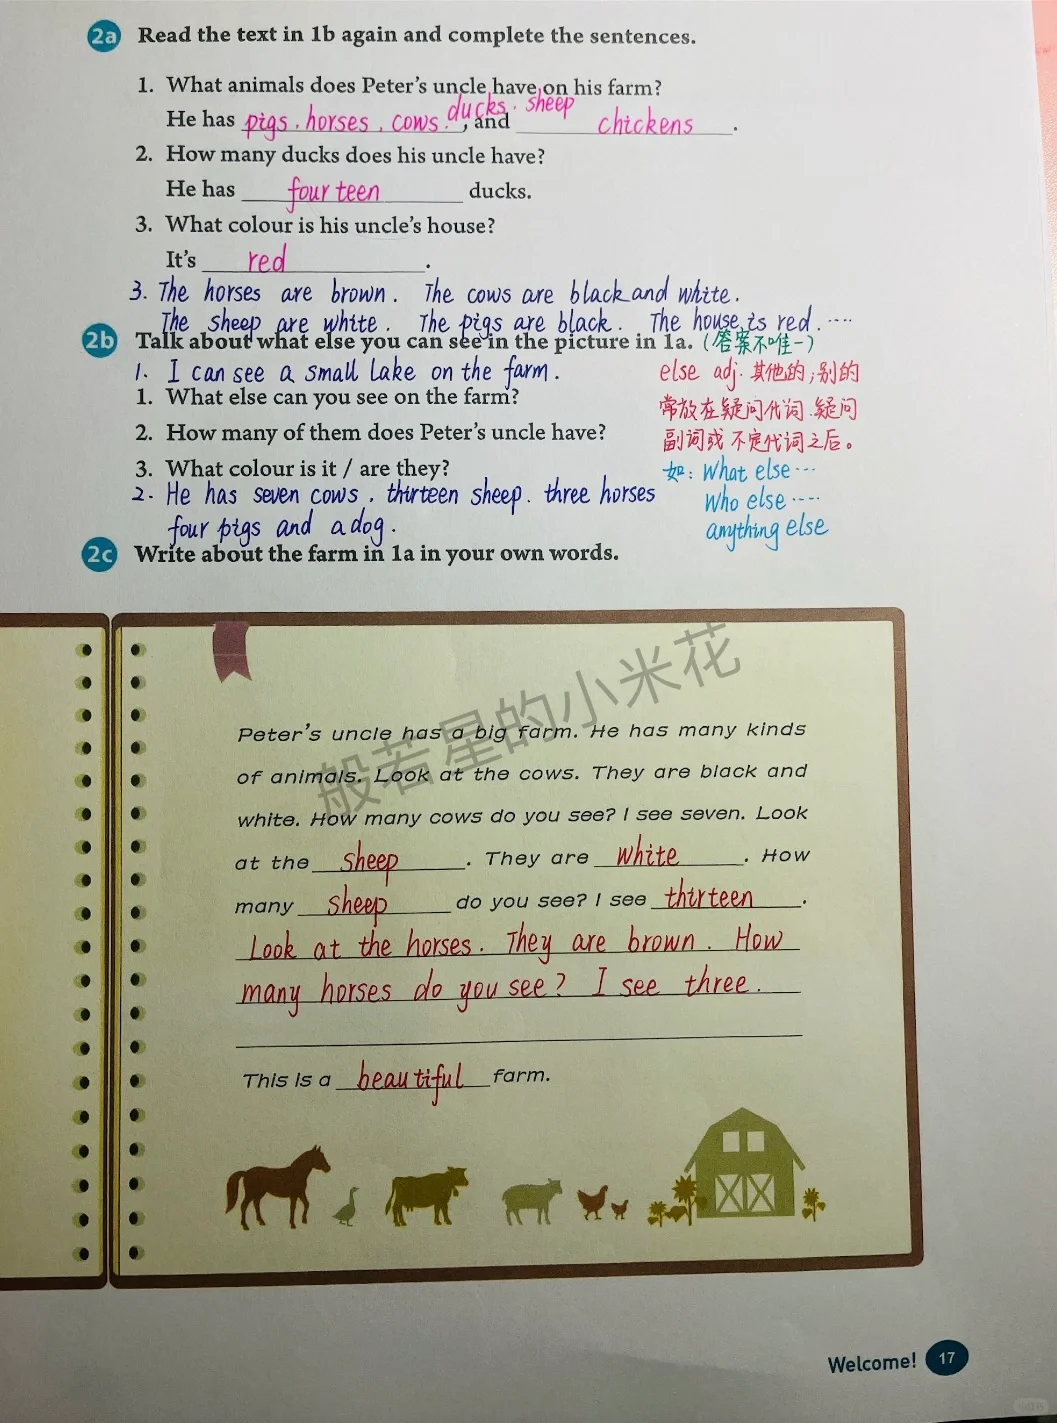 2a Read the text in 1b again and complete the sentences.
1. What animals does Peter's uncle have on his farm?
ducks. sheep
He has pigs. horses. cows. , and chickens.
2. How many ducks does his uncle have?
He has fourteen ducks.
3. What colour is his uncle's house?
It's red.
3. The horses are brown. The cows are black and white.
The sheep are white. The pigs are black. The house is red. ····
2b Talk about what else you can see in the picture in 1a. (答案不唯一)
1. I can see a small lake on the farm.
else adj. 其他的;别的
1. What else can you see on the farm?
常放在疑问代词.疑问
2. How many of them does Peter's uncle have?
副词或不定代词之后。
3. What colour is it / are they?
如: What else ···
2. He has seven cows. thirteen sheep. three horses
Who else ····
four pigs and a dog.
anything else
2c Write about the farm in 1a in your own words.
Peter's uncle has a big farm. He has many kinds
of animals. Look at the cows. They are black and
white. How many cows do you see? I see seven. Look
at the sheep. They are white. How
many sheep do you see? I see thirteen.
Look at the horses. They are brown. How
many horses do you see? I see three.
This is a beautiful farm.
般若星的小米花
Welcome! 17